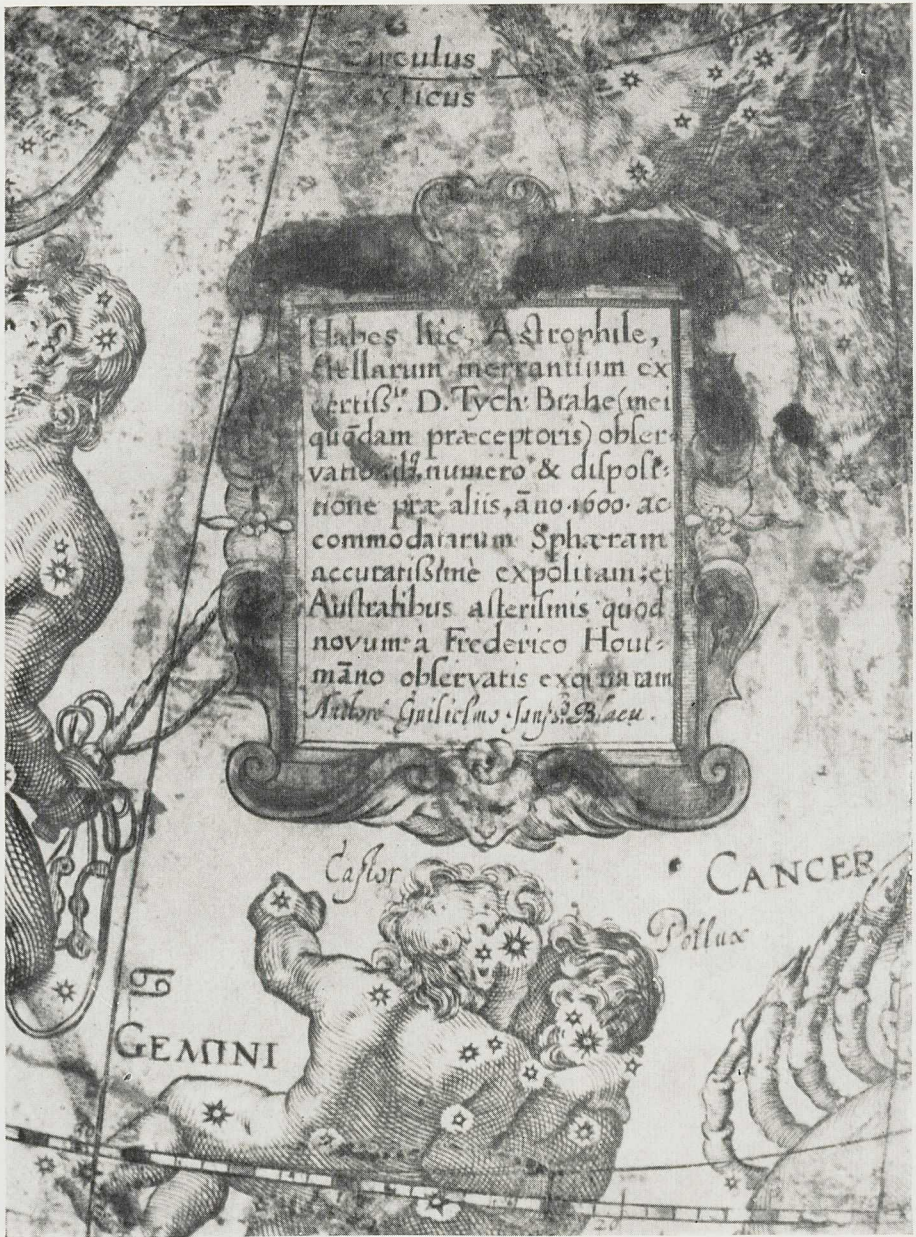 Circulus
Arcticus
Habes hic, Astrophile,
stellarum inerrantium ex
certiss.ⁱˢ D. Tych: Brahe (mei
quōdam præceptoris) obser-
vationibꝫ, numero & disposi-
tione præ aliis, āno 1600 ac
commodatarum Sphæram
accuratissimè expolitam; et
Australibus asterismis quod
novum à Frederico Hout-
māno observatis exornatam
Authore Guilielmo Janss.º Blaeu.
Castor
CANCER
Pollux
♋
GEMINI